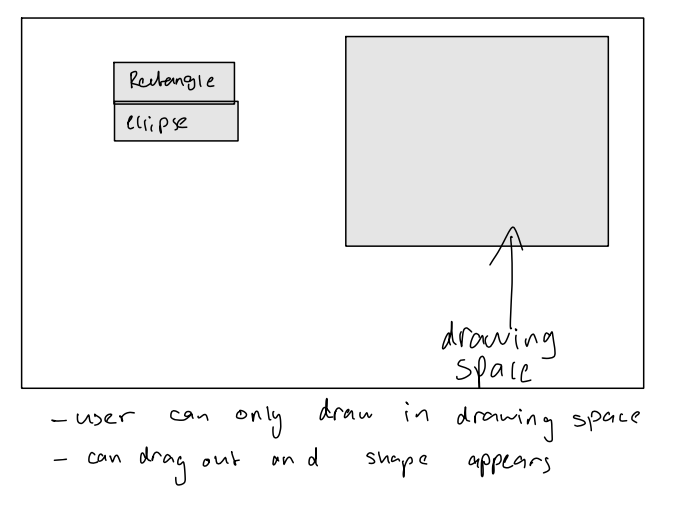 Rectangle
ellipse
drawing
space
- user can only draw in drawing space
- can drag out and shape appears